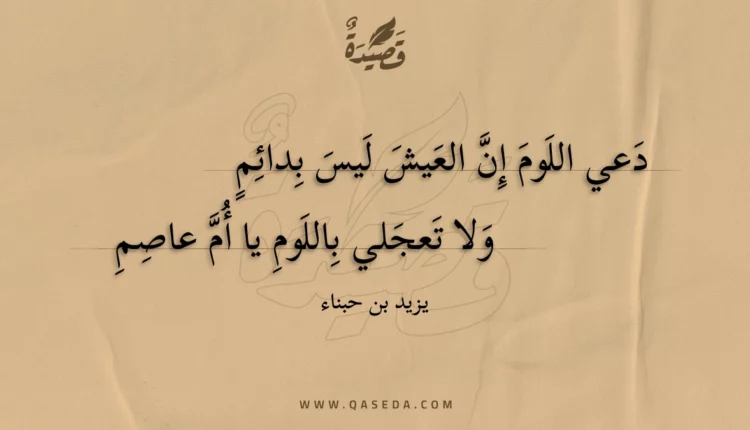 قَصِيدَةٌ
دَعي اللَومَ إِنَّ العَيشَ لَيسَ بِدائِمٍ
وَلا تَعجَلي بِاللَومِ يا أُمَّ عاصِمِ
يزيد بن حبناء
WWW.QASEDA.COM